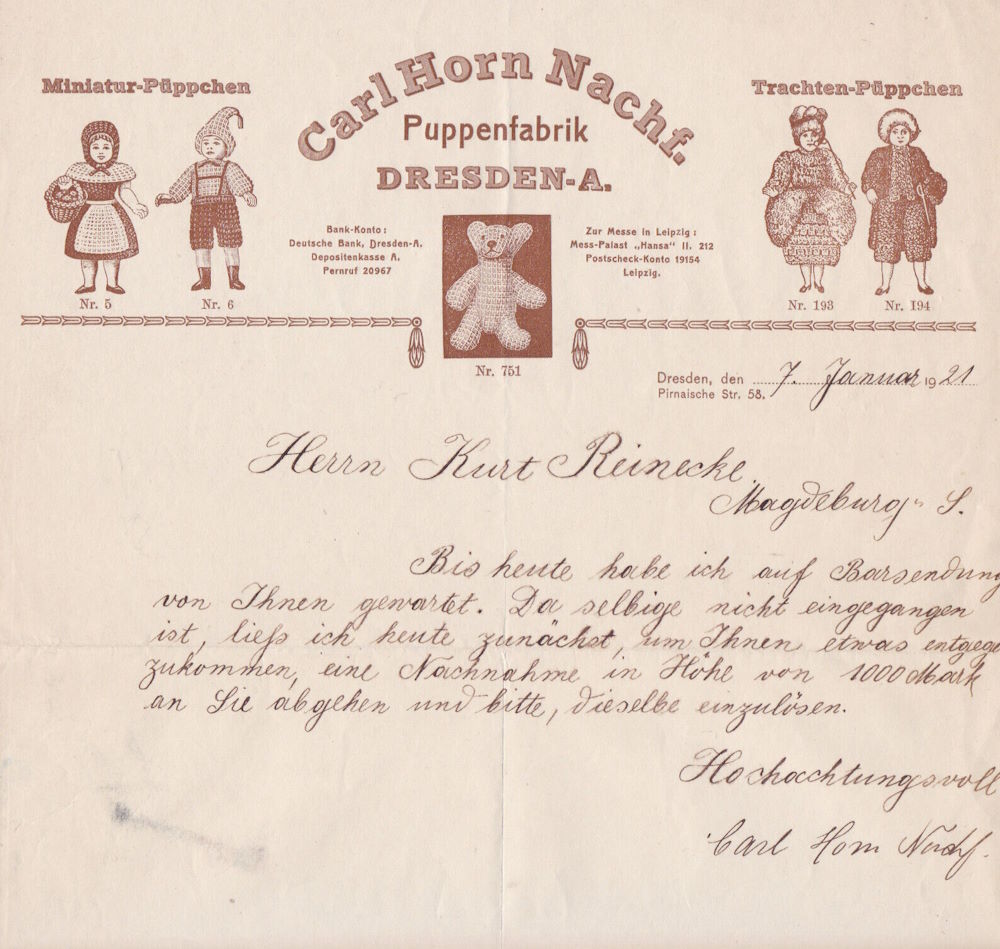 Miniatur-Püppchen
Carl Horn Nachf.
Trachten-Püppchen
Puppenfabrik
DRESDEN-A.
Bank-Konto:
Deutsche Bank, Dresden-A.
Depositenkasse A.
Pernruf 20967
Zur Messe in Leipzig:
Mess-Palast „Hansa“ II. 212
Postscheck-Konto 19154
Leipzig.
Nr. 5
Nr. 6
Nr. 193
Nr. 194
Nr. 751
Dresden, den 7. Januar 1921
Pirnaische Str. 58.
Herrn Kurt Reinecke,
Magdeburg-S.
Bis heute habe ich auf Barsendung
von Ihnen gewartet. Da selbige nicht eingegangen
ist, ließ ich heute zunächst, um Ihnen etwas entgege
zukommen, eine Nachnahme in Höhe von 1000 Mark
an Sie abgehen und bitte, dieselbe einzulösen.
Hochachtungsvoll
Carl Horn Nachf.